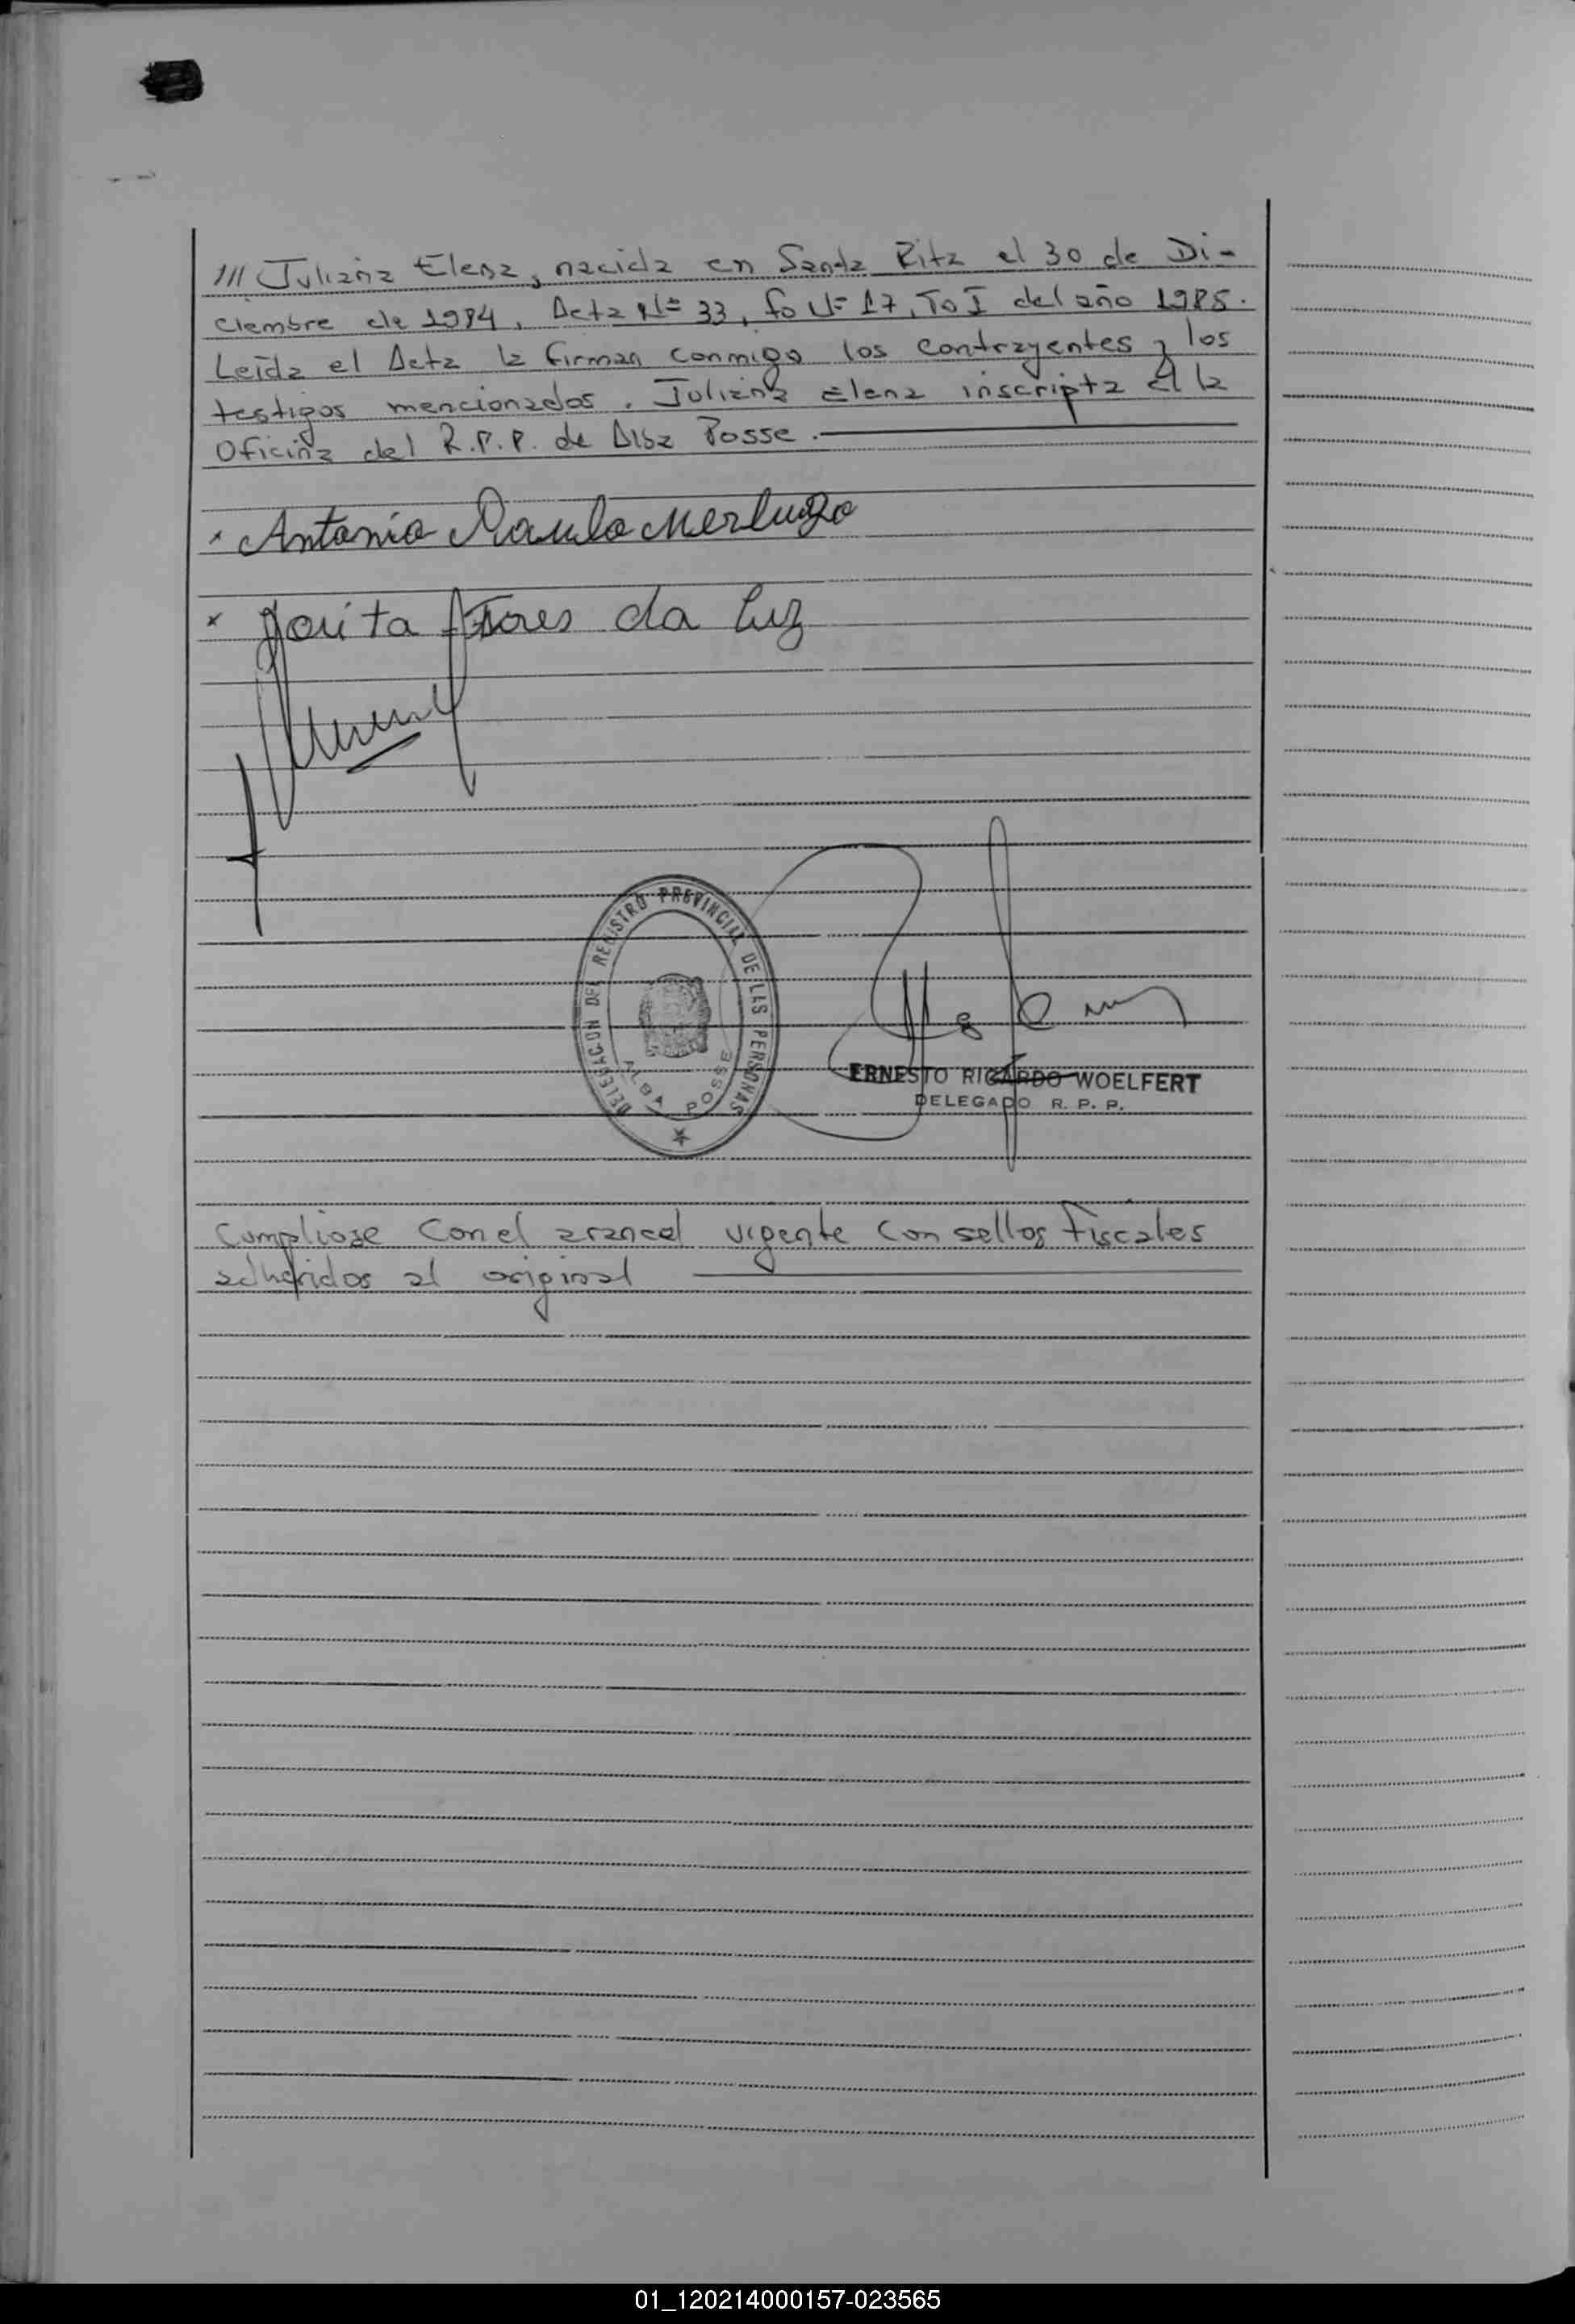 /// Juliana Elena, nacida en Santa Rita el 30 de Di-
ciembre de 1984, Acta Nº 33, fo Nº 17, To I del año 1985.
Leída el Acta la firman conmigo los contrayentes y los
testigos mencionados. Juliana Elena inscripta el la
Oficina del R.P.P. de Alba Posse.
x Antonio Paulo
x Flores da Luz
DELEGACION DEL REGISTRO PROVINCIAL DE LAS PERSONAS
ALBA POSSE
ERNESTO RICARDO WOELFERT
DELEGADO R. P. P.
Cumpliose con el arancel vigente con sellos fiscales
adheridos al original
01_120214000157-023565